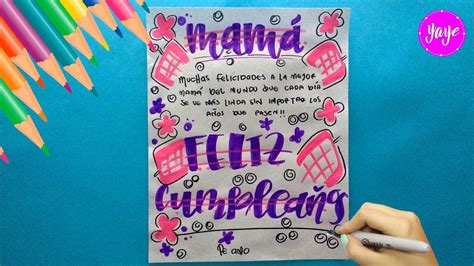 Yaye
mamá
MUCHAS FELICIDADES A LA MEJOR
MAMÁ DEL MUNDO QUE CADA DÍA
SE VE MÁS LINDA SIN IMPORTAR LOS
AÑOS QUE PASEN!!
FELIZ
cumpleaños
TE AMO
Sharpie